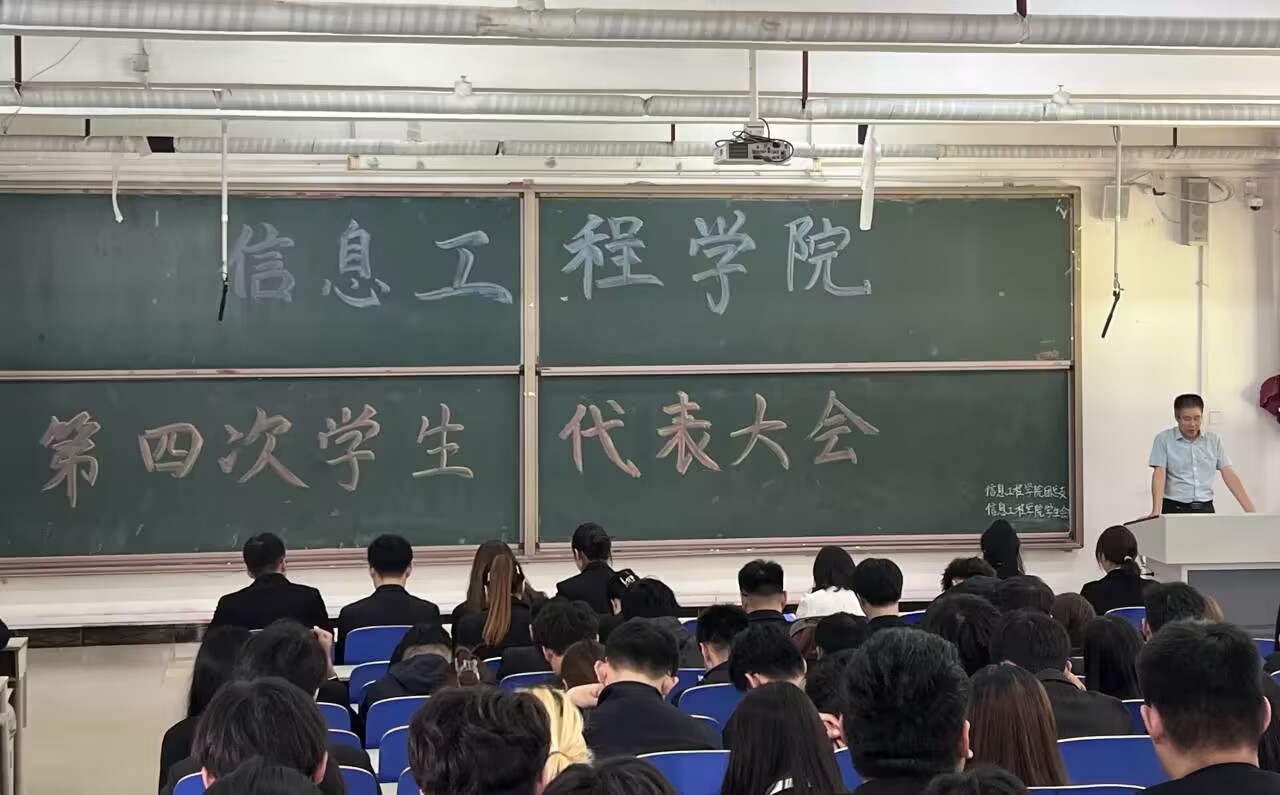 信息工程学院
第四次学生代表大会
信息工程学院团总支
信息工程学院学生会